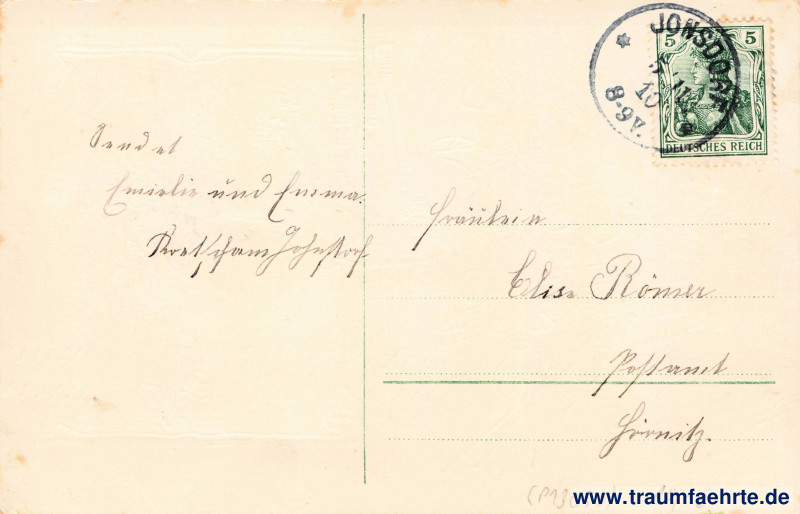 Sendet
Emielie und Emma.
Kretscham Johnsdorf.
JONSDORF
8-9V.
5 5
DEUTSCHES REICH
Fräulein
Elise Römer
Postamt
Hörnitz.
www.traumfaehrte.de